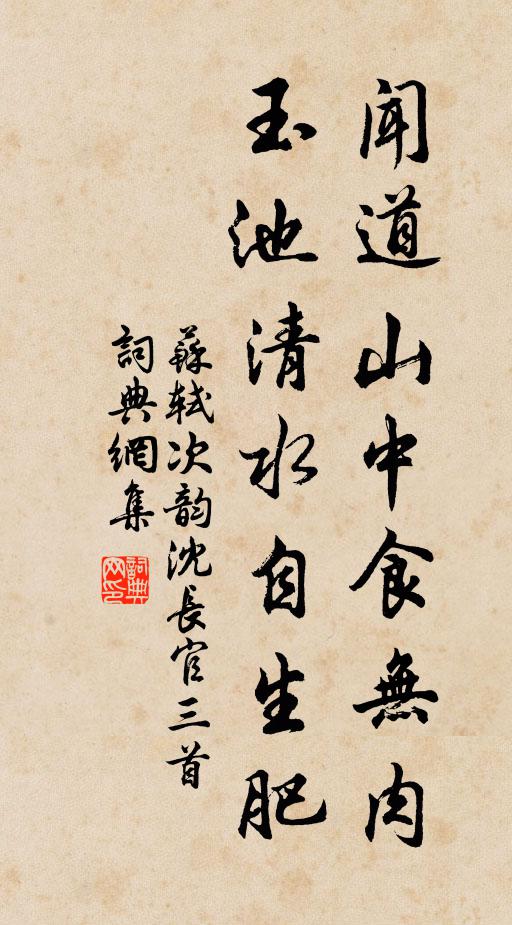 聞道山中食無肉
玉池清水自生肥
蘇軾次韵沈長官三首
詞典網集
詞典网印